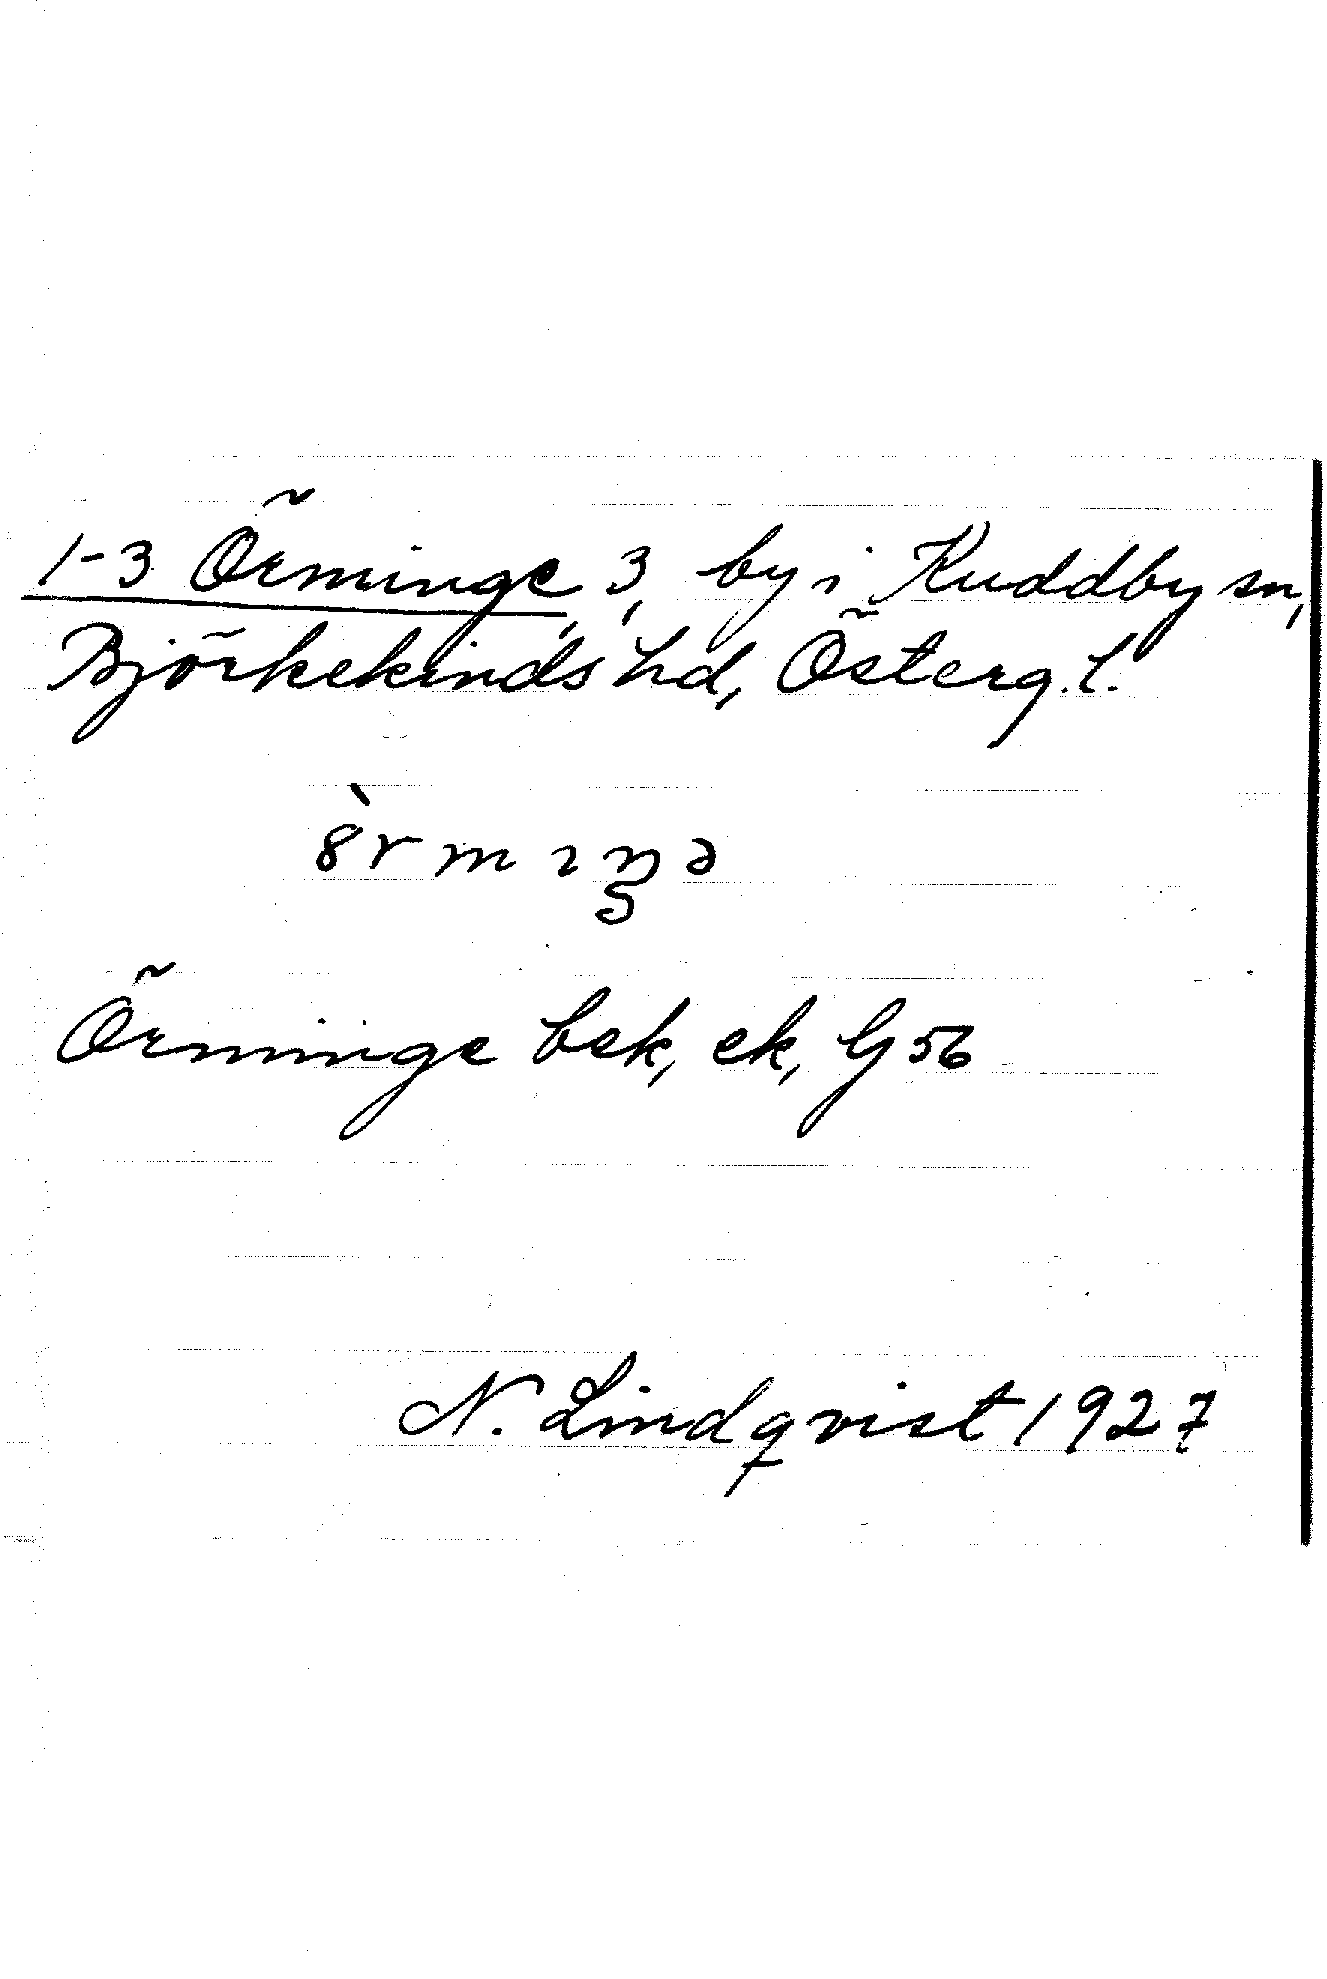 1-3 Örminge, 3, by i Kuddby sn,
Björkekinds hd, Österg. l.
ȣ̀rmıŋə
Örminge bek, ek, Gj 56
N. Lindqvist 1927